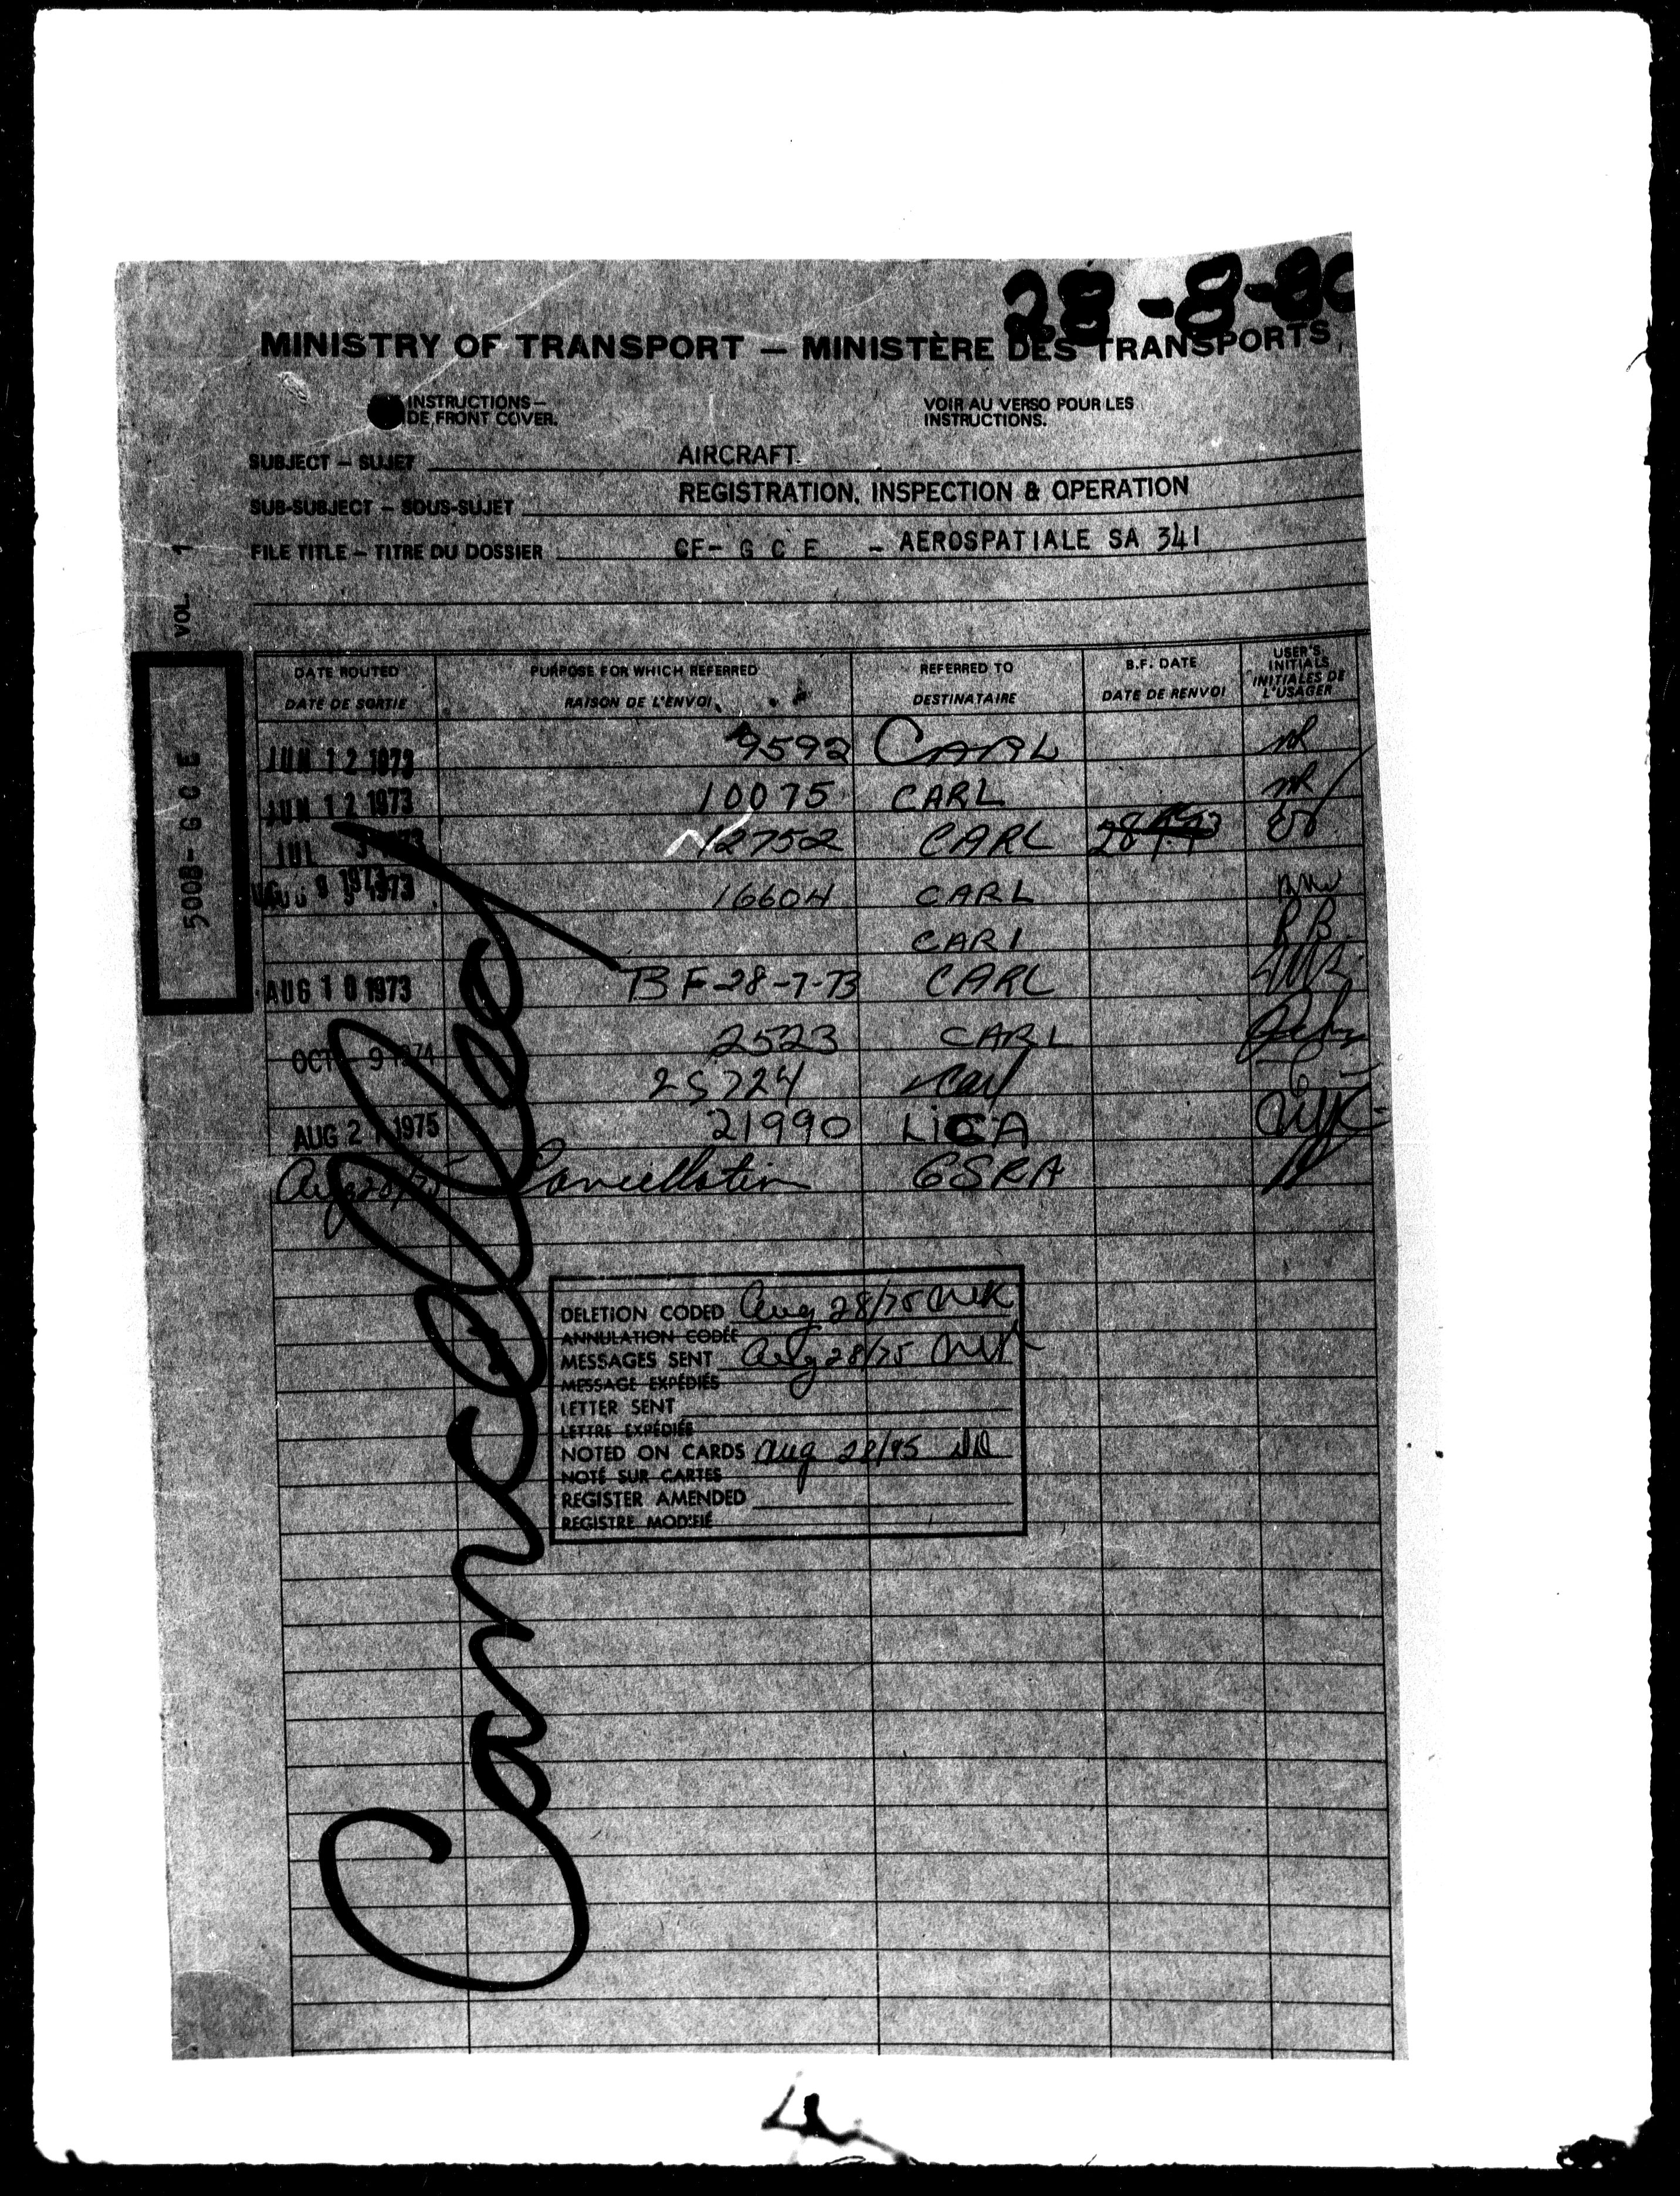 28-8-80
MINISTRY OF TRANSPORT — MINISTÈRE DES TRANSPORTS
INSTRUCTIONS —
DE FRONT COVER.
VOIR AU VERSO POUR LES
INSTRUCTIONS.
SUBJECT — SUJET AIRCRAFT
SUB-SUBJECT — SOUS-SUJET REGISTRATION, INSPECTION & OPERATION
FILE TITLE — TITRE DU DOSSIER CF- G C E - AEROSPATIALE SA 341
VOL. 1
5008- G C E
DATE ROUTED
DATE DE SORTIE
PURPOSE FOR WHICH REFERRED
RAISON DE L'ENVOI
REFERRED TO
DESTINATAIRE
B.F. DATE
DATE DE RENVOI
USER'S
INITIALS
INITIALES DE
L'USAGER
JUN 12 1973 9592 CARL
JUN 12 1973 10075 CARL
JUL 3 1973 12752 CARL
AUG 9 1973 16604 CARL
CARL
AUG 10 1973 BF-28-7-73 CARL
2523 CARL
OCT 9 1974 25724 Carl
AUG 21 1975 21990 LICA
Aug 28/75 Cancellation CSRA
Cancelled
DELETION CODED Aug 28/75 MK
ANNULATION CODÉE
MESSAGES SENT Aug 28/75 MK
MESSAGE EXPÉDIÉS
LETTER SENT
LETTRE EXPÉDIÉE
NOTED ON CARDS Aug 28/75
NOTÉ SUR CARTES
REGISTER AMENDED
REGISTRE MODIFIÉ